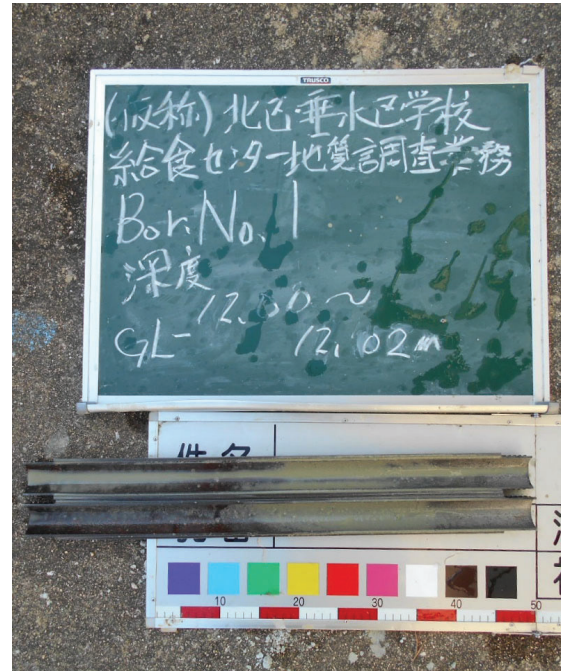 TRUSCO
(仮称)北区垂水区学校
給食センター地質調査業務
Bor.No.1
深度
12.00~
GL- 12.02m
件名
10 20 30 40 50